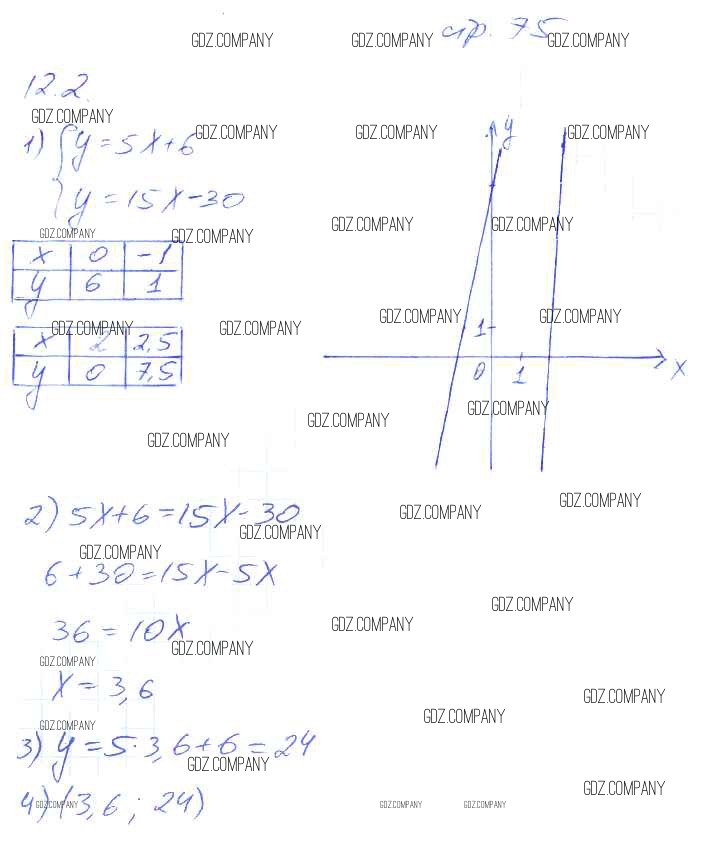 GDZ.COMPANY GDZ.COMPANY стр. 75 GDZ.COMPANY
12.2.
GDZ.COMPANY
1) { y = 5x+6 GDZ.COMPANY GDZ.COMPANY y GDZ.COMPANY
y = 15x-30
GDZ.COMPANY GDZ.COMPANY GDZ.COMPANY GDZ.COMPANY
x 0 -1
y 6 1
GDZ.COMPANY GDZ.COMPANY GDZ.COMPANY 1 GDZ.COMPANY
x 2 2,5
y 0 7,5
0 1 x
GDZ.COMPANY GDZ.COMPANY GDZ.COMPANY
2) 5x+6=15x-30
GDZ.COMPANY GDZ.COMPANY GDZ.COMPANY
GDZ.COMPANY
6+30=15x-5x
GDZ.COMPANY
36=10x
GDZ.COMPANY GDZ.COMPANY
GDZ.COMPANY
x = 3,6
GDZ.COMPANY GDZ.COMPANY
GDZ.COMPANY
3) y = 5·3,6+6=24
GDZ.COMPANY GDZ.COMPANY
4) (3,6; 24)
GDZ.COMPANY GDZ.COMPANY GDZ.COMPANY